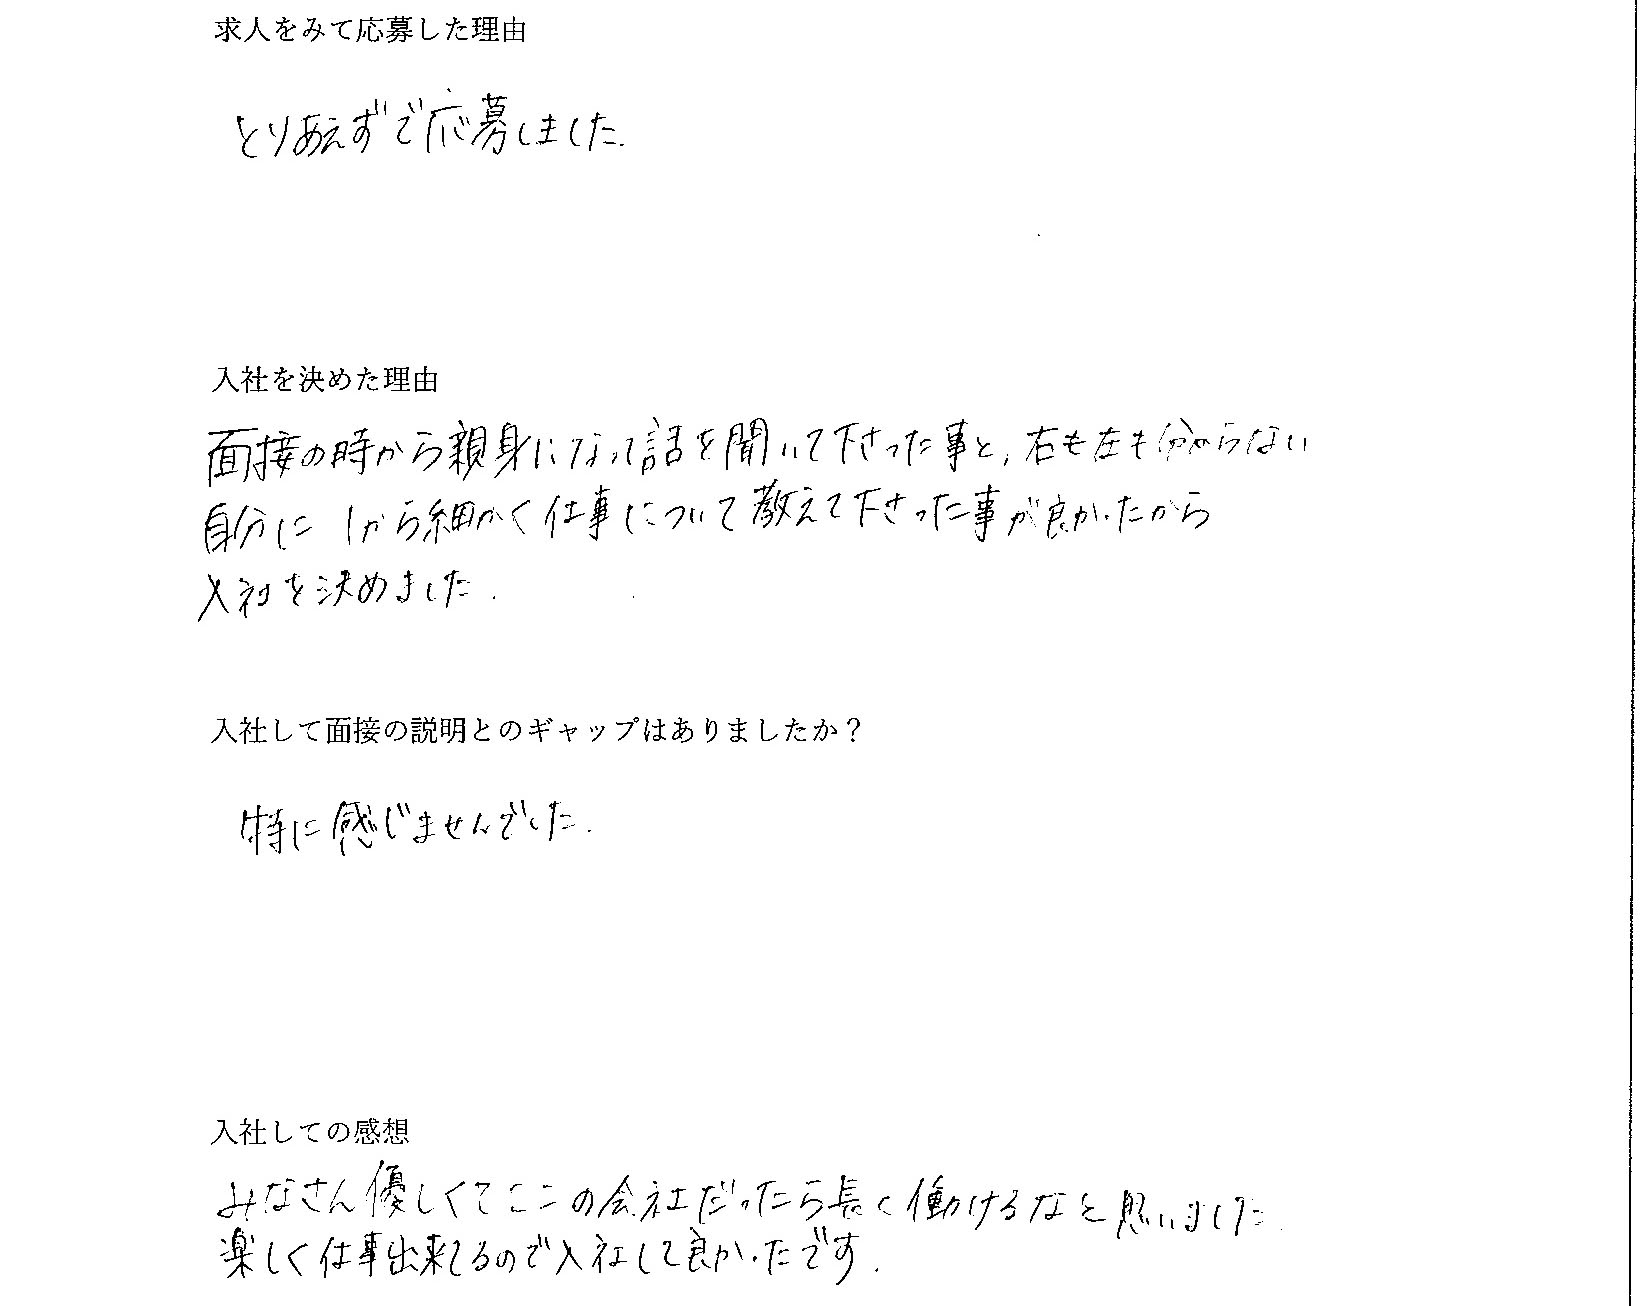 求人をみて応募した理由
とりあえずで応募しました.
入社を決めた理由
面接の時から親身になって話を聞いて下さった事と, 右も左も分からない
自分に 1から細かく仕事について教えて下さった事が良かったから
入社を決めました.
入社して面接の説明とのギャップはありましたか？
特に感じませんでした.
入社しての感想
みなさん優しくてここの会社だったら長く働けるなと思いました.
楽しく仕事出来てるので入社して良かったです.